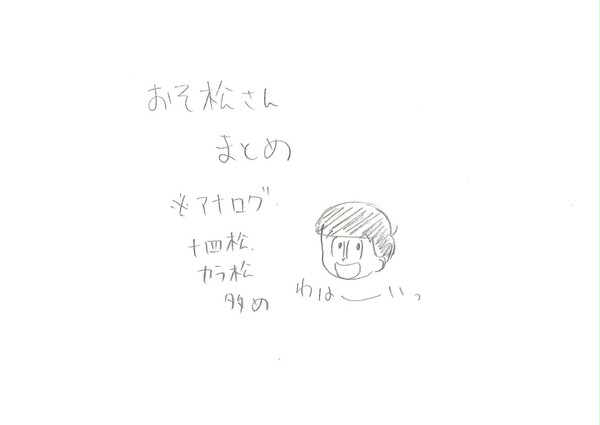 おそ松さん
まとめ
※アナログ
十四松
カラ松
多め
わは––いっ